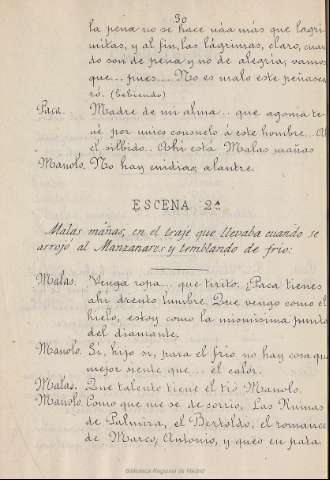 30
la pena no se hace náa más que lagri-
mitas, y al fin, las lágrimas, claro, cuan
do son de pena y no de alegría, vamos
que... pues... No es malo este peñasca
ró. (Bebiendo)
Paca. Madre de mi alma... que agonía ten
ré por unico consuelo á este hombre...
el silbido. Ahí está Malas mañas
Manolo. No hay cuidiao, alantre.
ESCENA 2ª
Malas mañas, en el traje que llevaba cuando se
arrojó al Manzanares y temblando de frio:
Malas. Venga ropa... que tirito. ¿Paca tienes
ahi drento lumbre. Que vengo como el
hielo, estoy como la mismisima punta
del diamante.
Manolo. Si, hijo si, para el frio no hay cosa que
mejor siente que... el calor.
Malas. Que talento tiene el tio Manolo.
Manolo. Como que me se de corrio, Las Ruinas
de Palmira, el Bertoldo, el romance
de Marco, Antonio, y queo en pata
Biblioteca Regional de Madrid